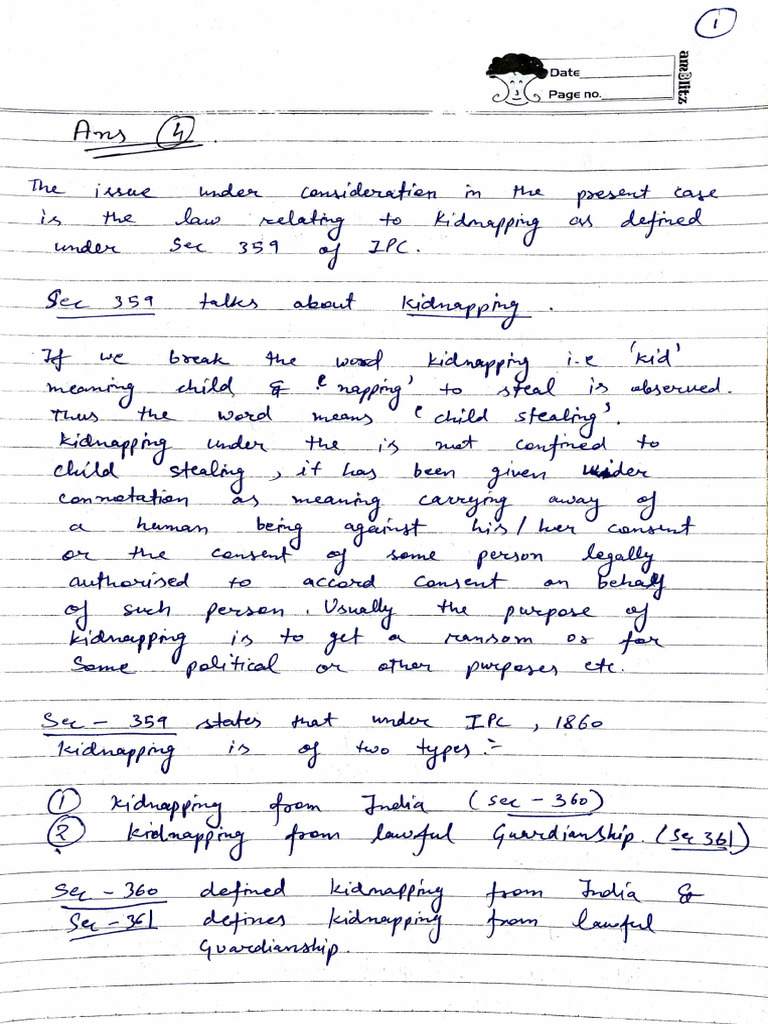 1
amBlitz
Date
Page no.
Ans 4.
The issue under consideration in the present case
is the law relating to kidnapping as defined
under Sec 359 of IPC.
Sec 359 talks about kidnapping.
If we break the word kidnapping i.e 'kid'
meaning child & 'napping' to steal is observed.
Thus the word means 'child stealing'.
Kidnapping under the is not confined to
child stealing, it has been given wider
connotation as meaning carrying away of
a human being against his/her consent
or the consent of some person legally
authorised to accord consent on behalf
of such person. Usually the purpose of
kidnapping is to get a ransom or for
some political or other purposes etc.
Sec - 359 states that under IPC, 1860
kidnapping is of two types :-
1 Kidnapping from India (Sec - 360)
2 Kidnapping from lawful Guardianship. (Sec 361)
Sec - 360 defined kidnapping from India &
Sec - 361 defines kidnapping from lawful
Guardianship.